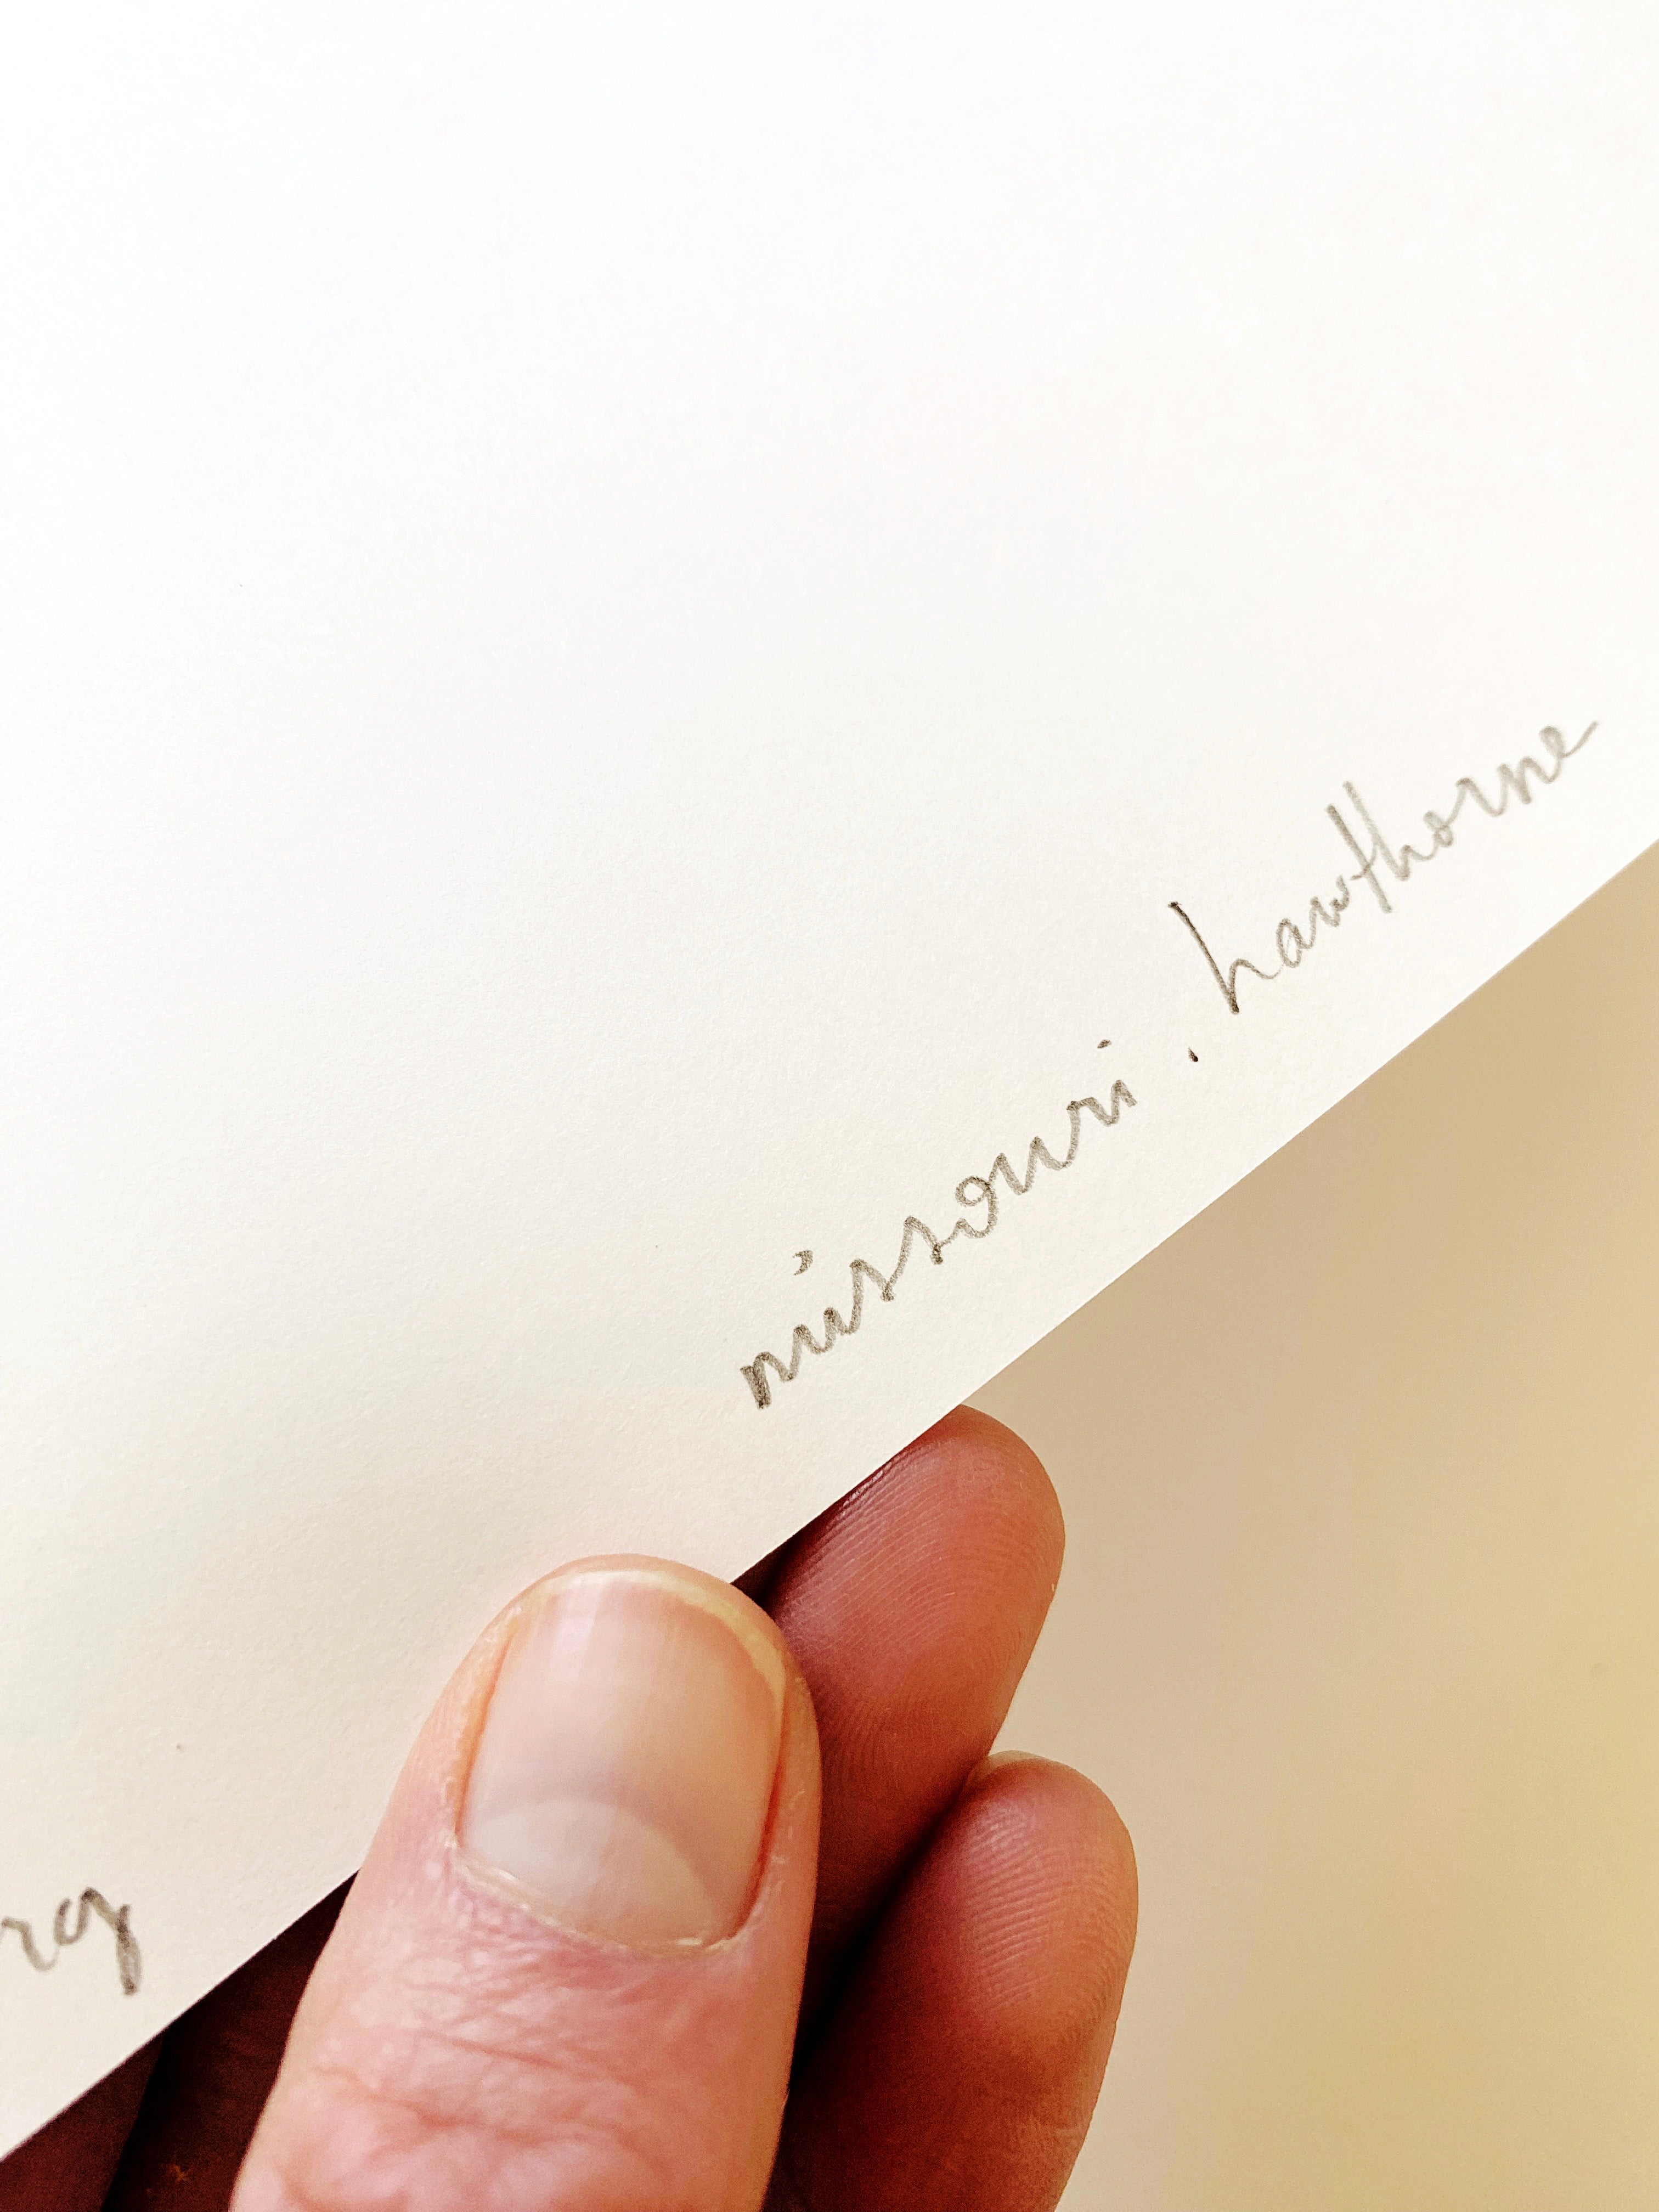 missouri . hawthorne